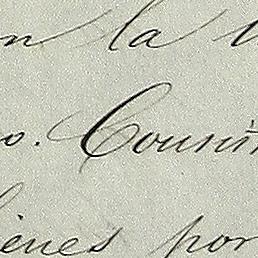 n la
o. Cousi
ienes por